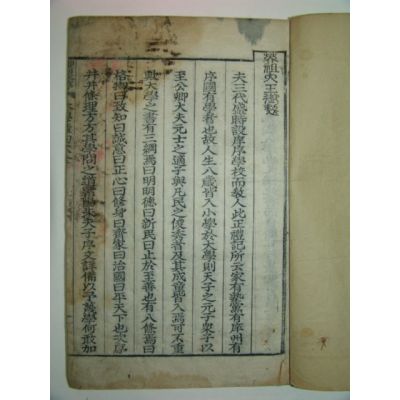 英祖大王
夫三代盛時設庠序學校而敎人此正禮記所云家有塾黨有庠州有
序國有學者也故人生八歲皆入小學於大學則天子之元子衆子以
至公卿大夫元士之適子與凡民之俊秀者及其成童皆入焉可不重
歟大學之書有三綱焉曰明明德曰新民曰止於至善也有八條焉曰
格物曰致知曰誠意曰正心曰修身曰齊家曰治國曰平天下也次序
井井條理方方其學問之道紫陽朱夫子序文詳備以予蔑學何敢加